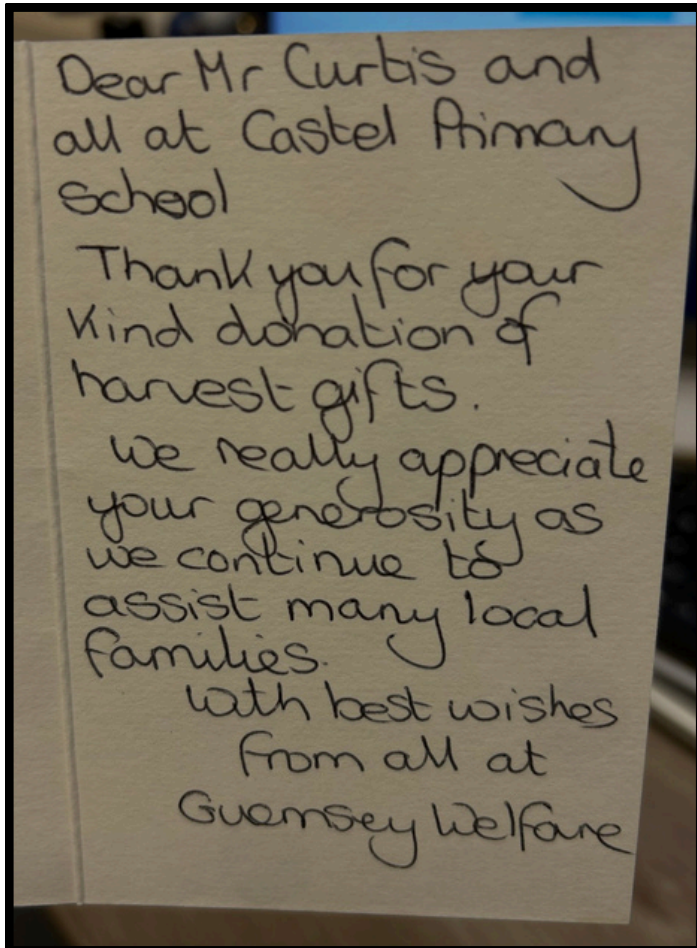 Dear Mr Curtis and
all at Castel Primary
School
Thank you for your
kind donation of
harvest gifts.
We really appreciate
your generosity as
we continue to
assist many local
families.
With best wishes
from all at
Guernsey Welfare